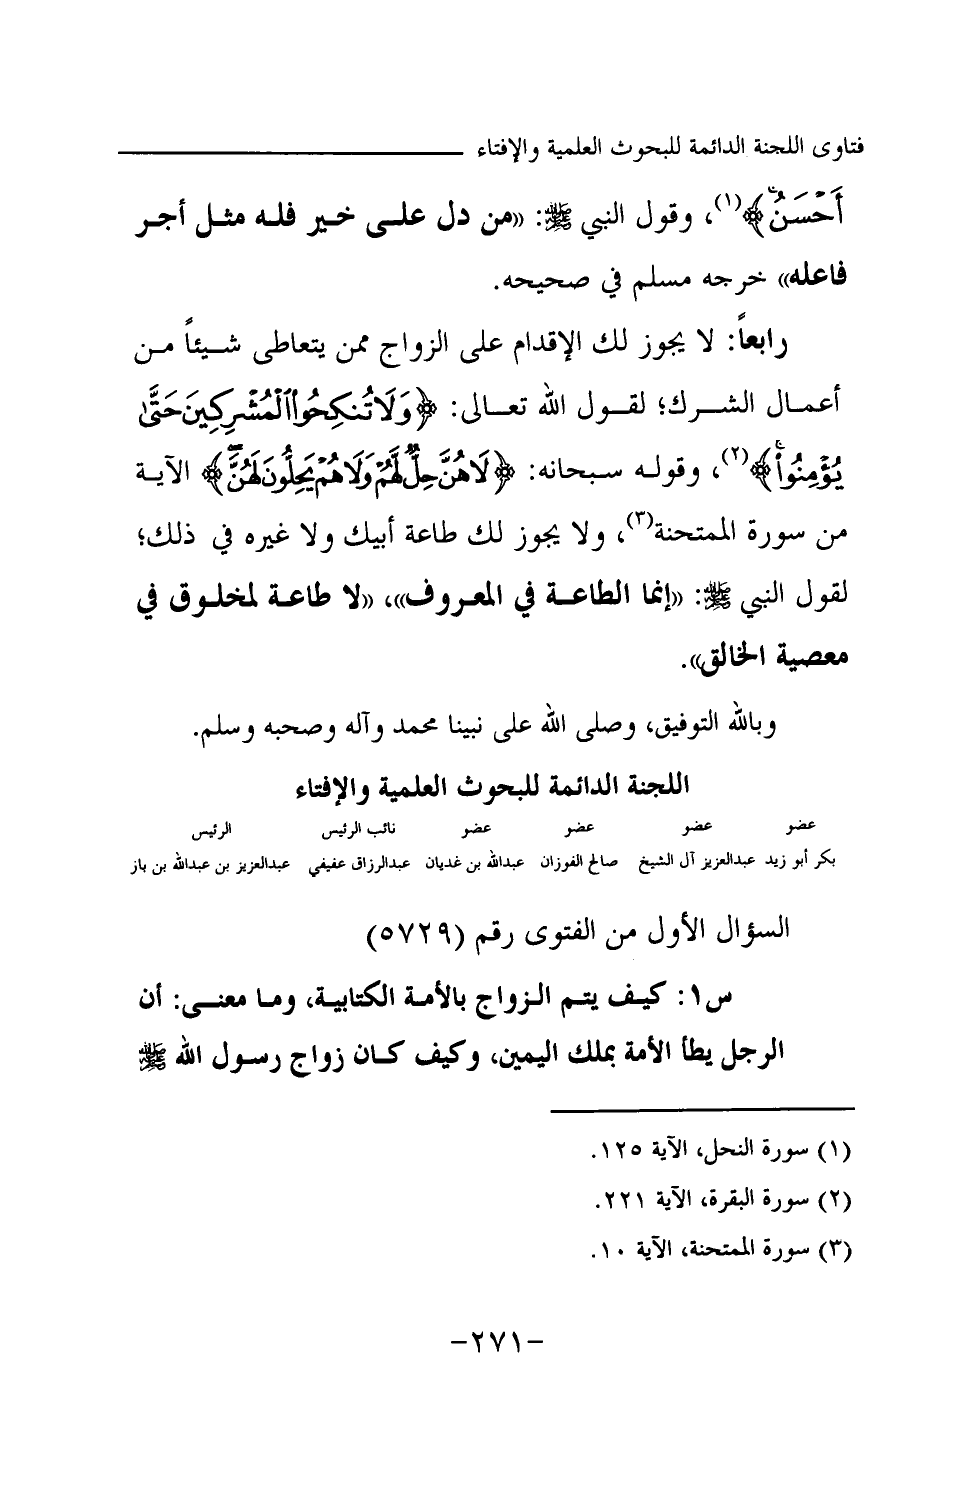 فتاوى اللجنة الدائمة للبحوث العلمية والإفتاء
أَحْسَنُ﴾(١)، وقول النبي ﷺ: «من دل على خير فله مثل أجر
فاعله» خرجه مسلم في صحيحه.
رابعاً: لا يجوز لك الإقدام على الزواج ممن يتعاطى شيئاً من
أعمال الشرك؛ لقول الله تعالى: ﴿وَلَا تُنكِحُوا۟ ٱلْمُشْرِكِينَ حَتَّىٰ
يُؤْمِنُوا۟﴾(٢)، وقوله سبحانه: ﴿لَا هُنَّ حِلٌّ لَّهُمْ وَلَا هُمْ يَحِلُّونَ لَهُنَّ﴾ الآية
من سورة الممتحنة(٣)، ولا يجوز لك طاعة أبيك ولا غيره في ذلك؛
لقول النبي ﷺ: «إنما الطاعة في المعروف»، «لا طاعة لمخلوق في
معصية الخالق».
وبالله التوفيق، وصلى الله على نبينا محمد وآله وصحبه وسلم.
اللجنة الدائمة للبحوث العلمية والإفتاء
عضو عضو عضو عضو نائب الرئيس الرئيس
بكر أبو زيد عبدالعزيز آل الشيخ صالح الفوزان عبدالله بن غديان عبدالرزاق عفيفي عبدالعزيز بن عبدالله بن باز
السؤال الأول من الفتوى رقم (٥٧٢٩)
س١: كيف يتم الزواج بالأمة الكتابية، وما معنى: أن
الرجل يطأ الأمة بملك اليمين، وكيف كان زواج رسول الله ﷺ
(١) سورة النحل، الآية ١٢٥.
(٢) سورة البقرة، الآية ٢٢١.
(٣) سورة الممتحنة، الآية ١٠.
-٢٧١-